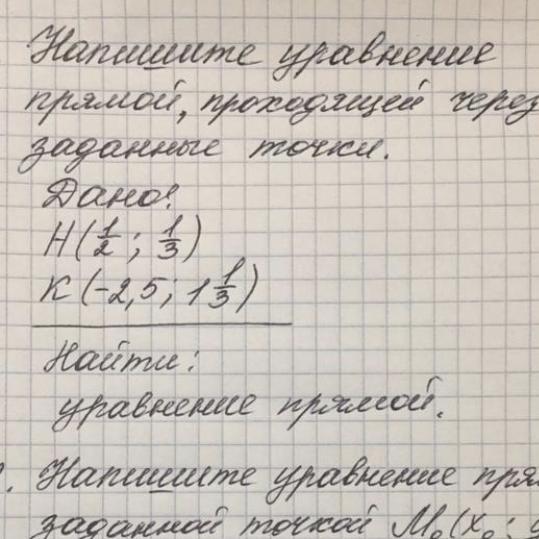 Напишите уравнение
прямой, проходящей через
заданные точки.
Дано:
H(1/2; 1/3)
K(-2,5; 1 1/3)
Найти:
уравнение прямой.
Напишите уравнение
заданной точкой M₀(x₀;